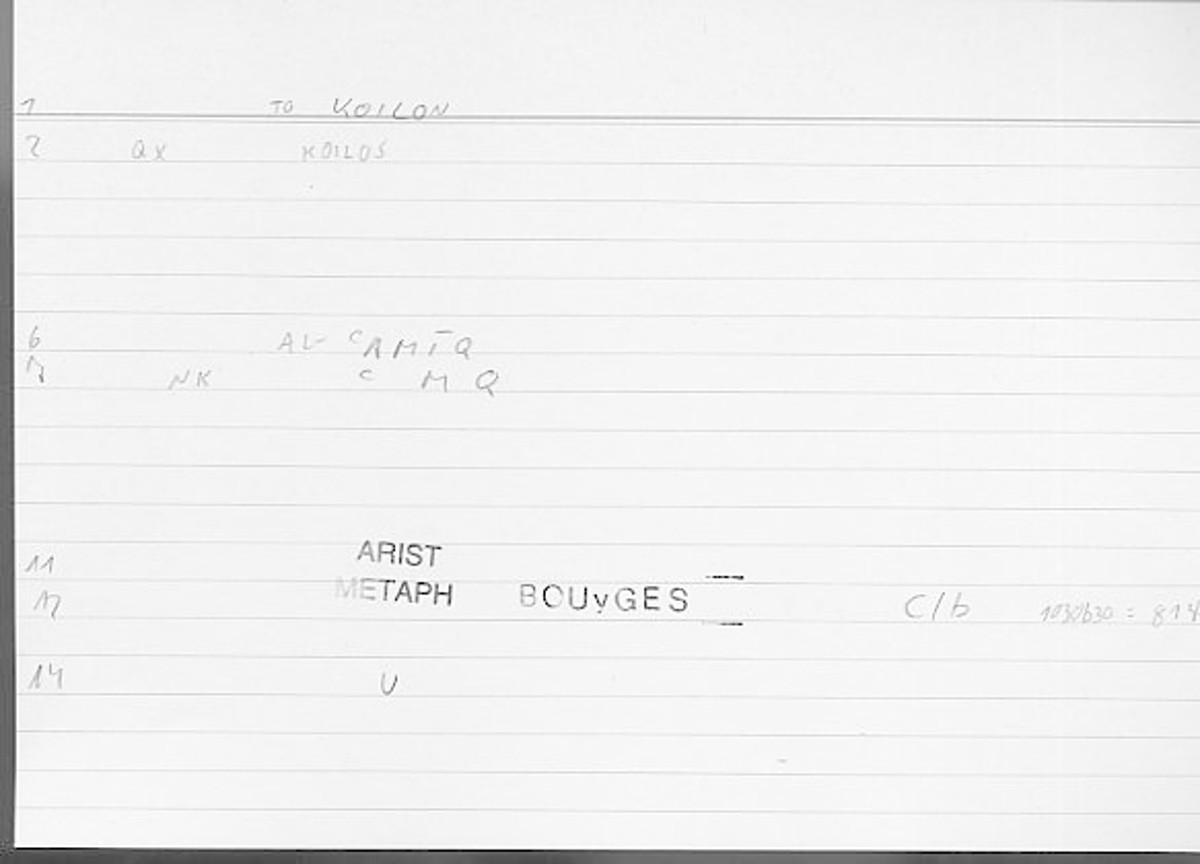 1 TO KOILON
2 QX KOILOS
6 AL- ᶜAMĪQ
7 NK ᶜ M Q
11 ARIST
12 METAPH BOUyGES C/b 1030b30 = 814
14 U